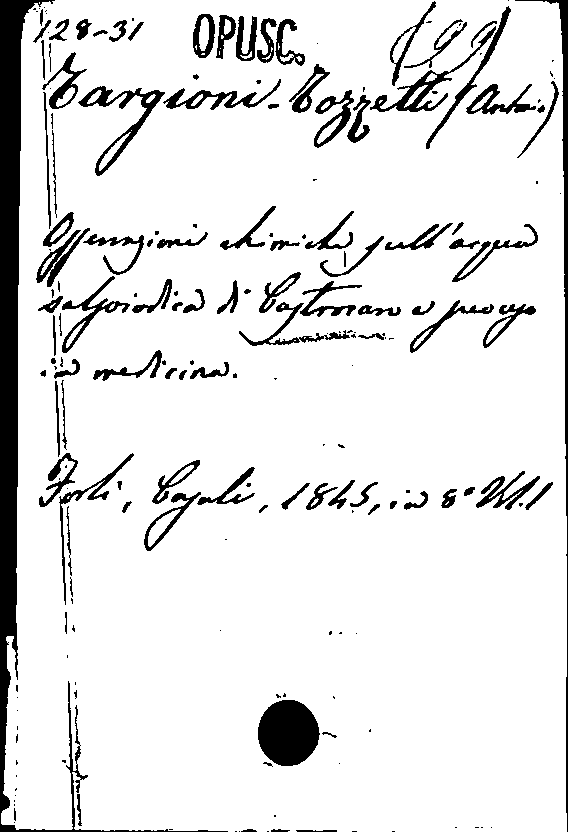 128-31 OPUSC.
Targioni-Tozzetti (Anton.)
Osservazioni chimiche sull'acqua
salsoiodica di Castrocaro e suo uso
in medicina.
Forlì, Casali, 1845, in 8°